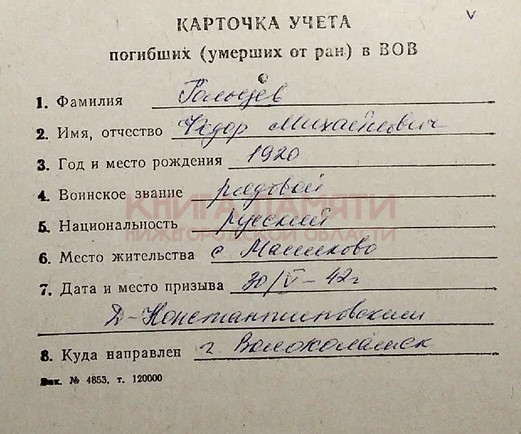 КАРТОЧКА УЧЕТА
погибших (умерших от ран) в ВОВ
1. Фамилия Гольцев
2. Имя, отчество Фёдор Михайлович
3. Год и место рождения 1920
4. Воинское звание рядовой
КНИГА ПАМЯТИ
5. Национальность русский
НИЖЕГОРОДСКОЙ ОБЛАСТИ
6. Место жительства с
7. Дата и место призыва 30/V-42г
Д-Константиновским
8. Куда направлен г. Волоколамск
Зак. № 4853, т. 120000